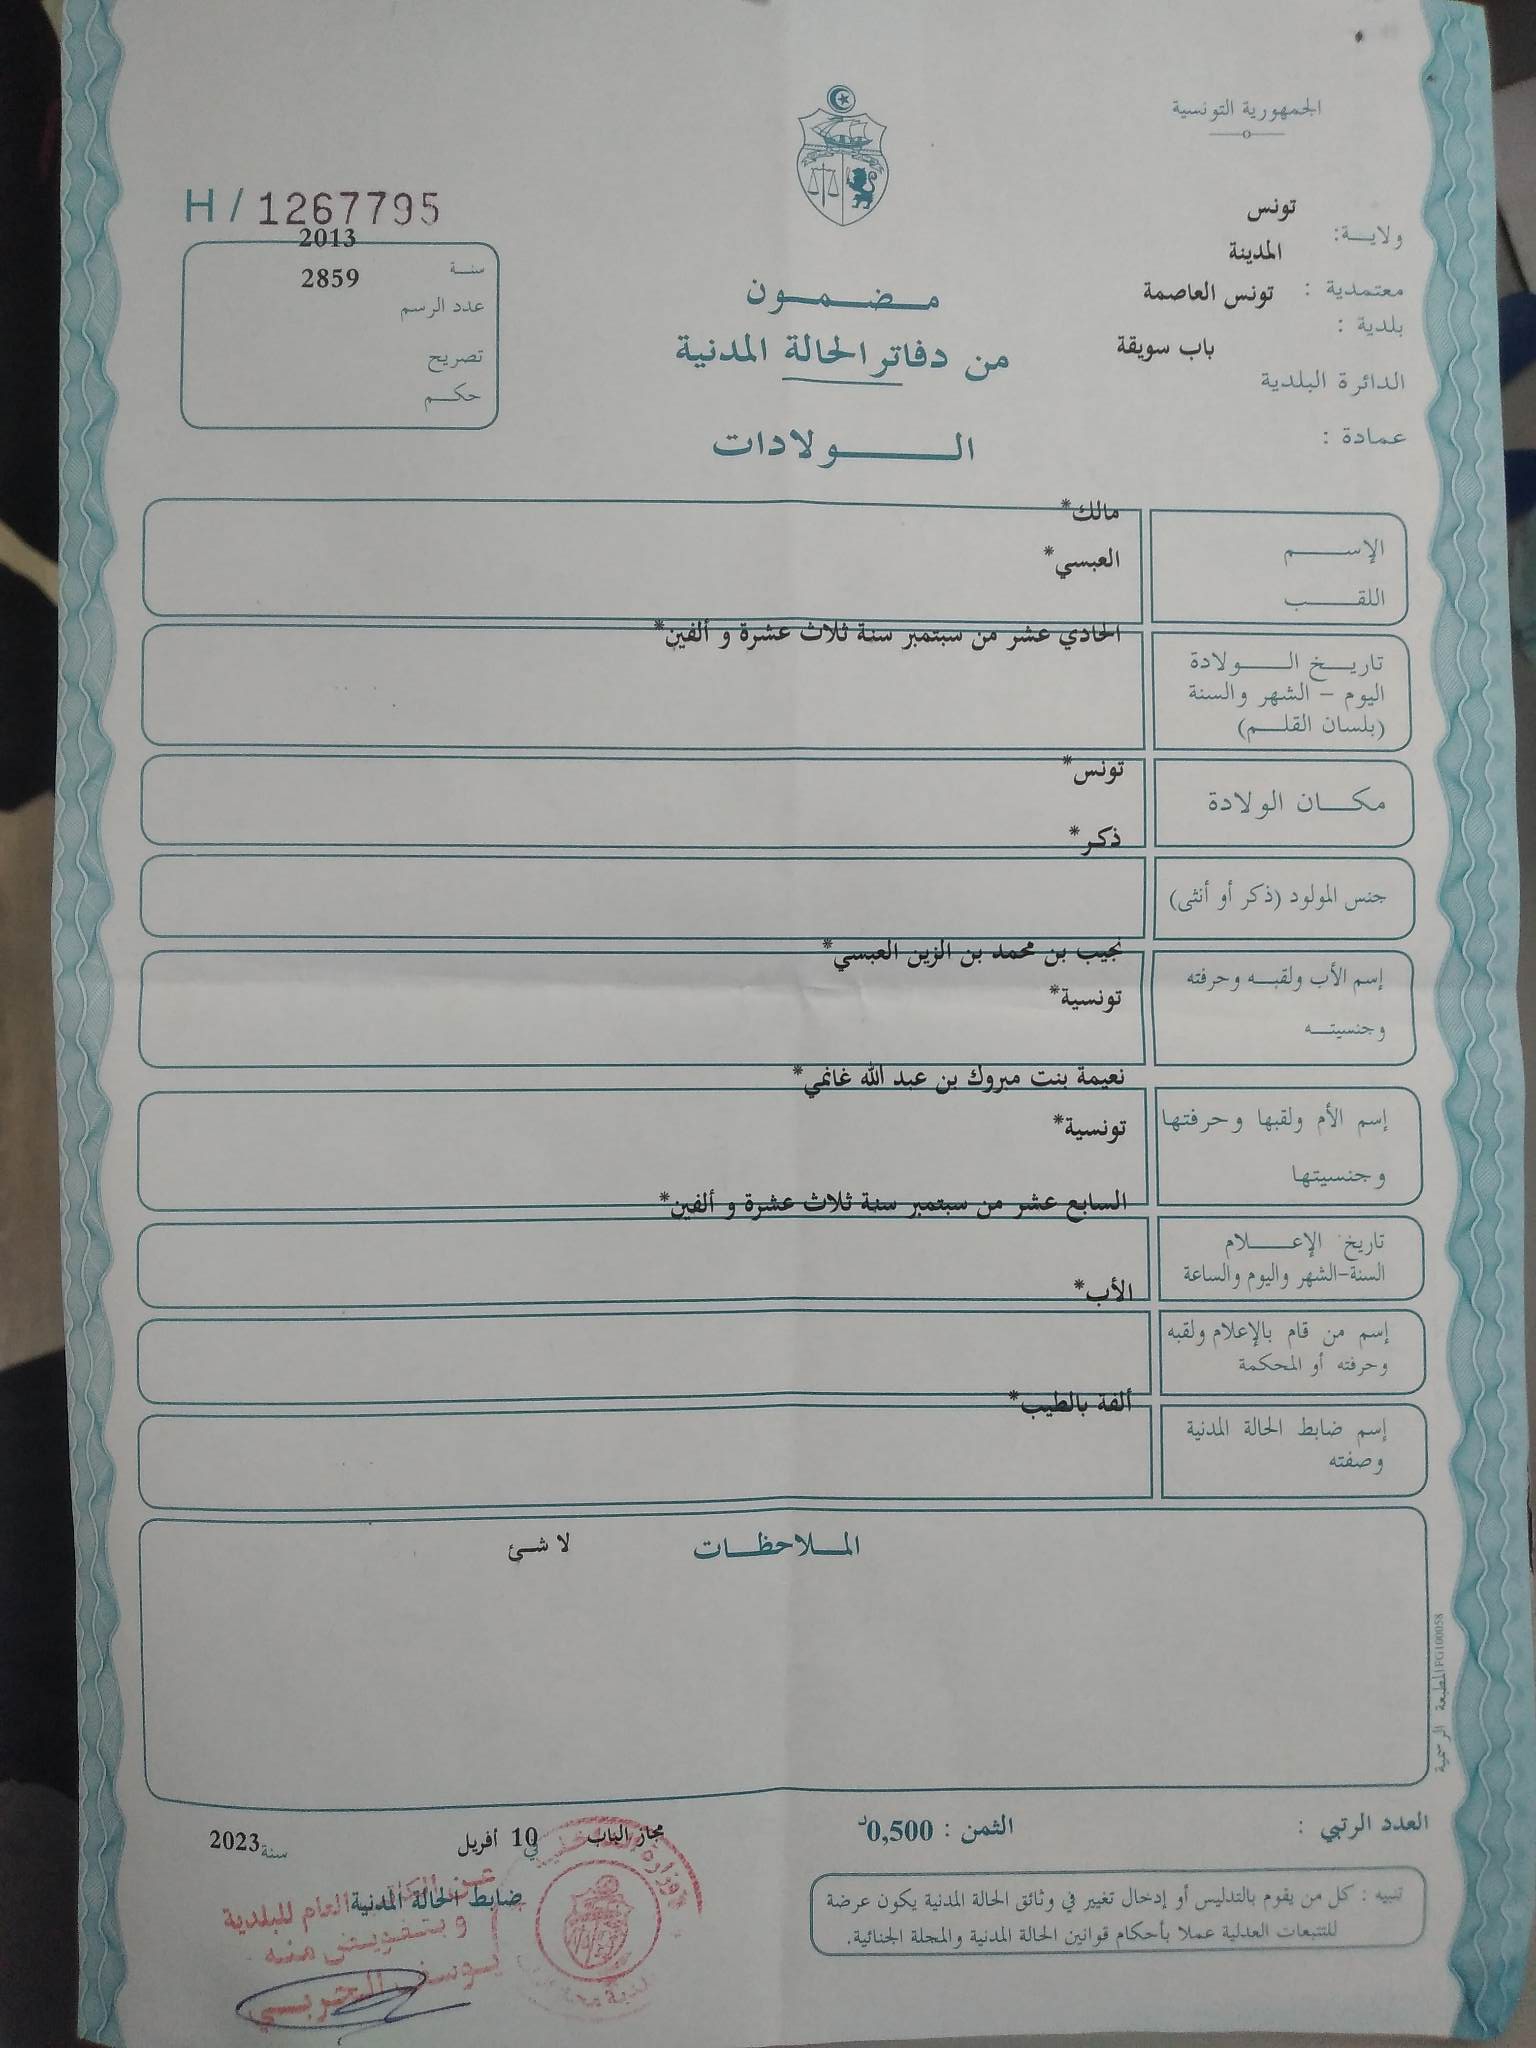 الجمهورية التونسية
H / 1267795
ولاية: تونس
معتمدية : المدينة
بلدية : تونس العاصمة
الدائرة البلدية باب سويقة
عمادة :
سنة 2013
عدد الرسم 2859
تصريح
حكم
مضمون
من دفاتر الحالة المدنية
الولادات
الإسم مالك*
اللقب العبسي*
تاريخ الولادة الحادي عشر من سبتمبر سنة ثلاث عشرة و ألفين*
اليوم - الشهر والسنة
(بلسان القلم)
مكان الولادة تونس*
جنس المولود (ذكر أو أنثى) ذكر*
إسم الأب ولقبه وحرفته نجيب بن محمد بن الزين العبسي*
وجنسيته تونسية*
إسم الأم ولقبها وحرفتها نعيمة بنت مبروك بن عبد الله غانمي*
وجنسيتها تونسية*
تاريخ الإعلام السابع عشر من سبتمبر سنة ثلاث عشرة و ألفين*
السنة-الشهر واليوم والساعة
إسم من قام بالإعلام ولقبه الأب*
وحرفته أو المحكمة
إسم ضابط الحالة المدنية ألفة بالطيب*
وصفته
الملاحظات لا شئ
المطبعة الرسمية IFG100058
العدد الرتبي :
الثمن : 0,500د
مجاز الباب في 10 أفريل سنة 2023
ضابط الحالة المدنية
العام للبلدية
وبتفويض منه
يوسف الحربي
وزارة الداخلية
تنبيه : كل من يقوم بالتدليس أو إدخال تغيير في وثائق الحالة المدنية يكون عرضة
للتتبعات العدلية عملا بأحكام قوانين الحالة المدنية والمجلة الجنائية.